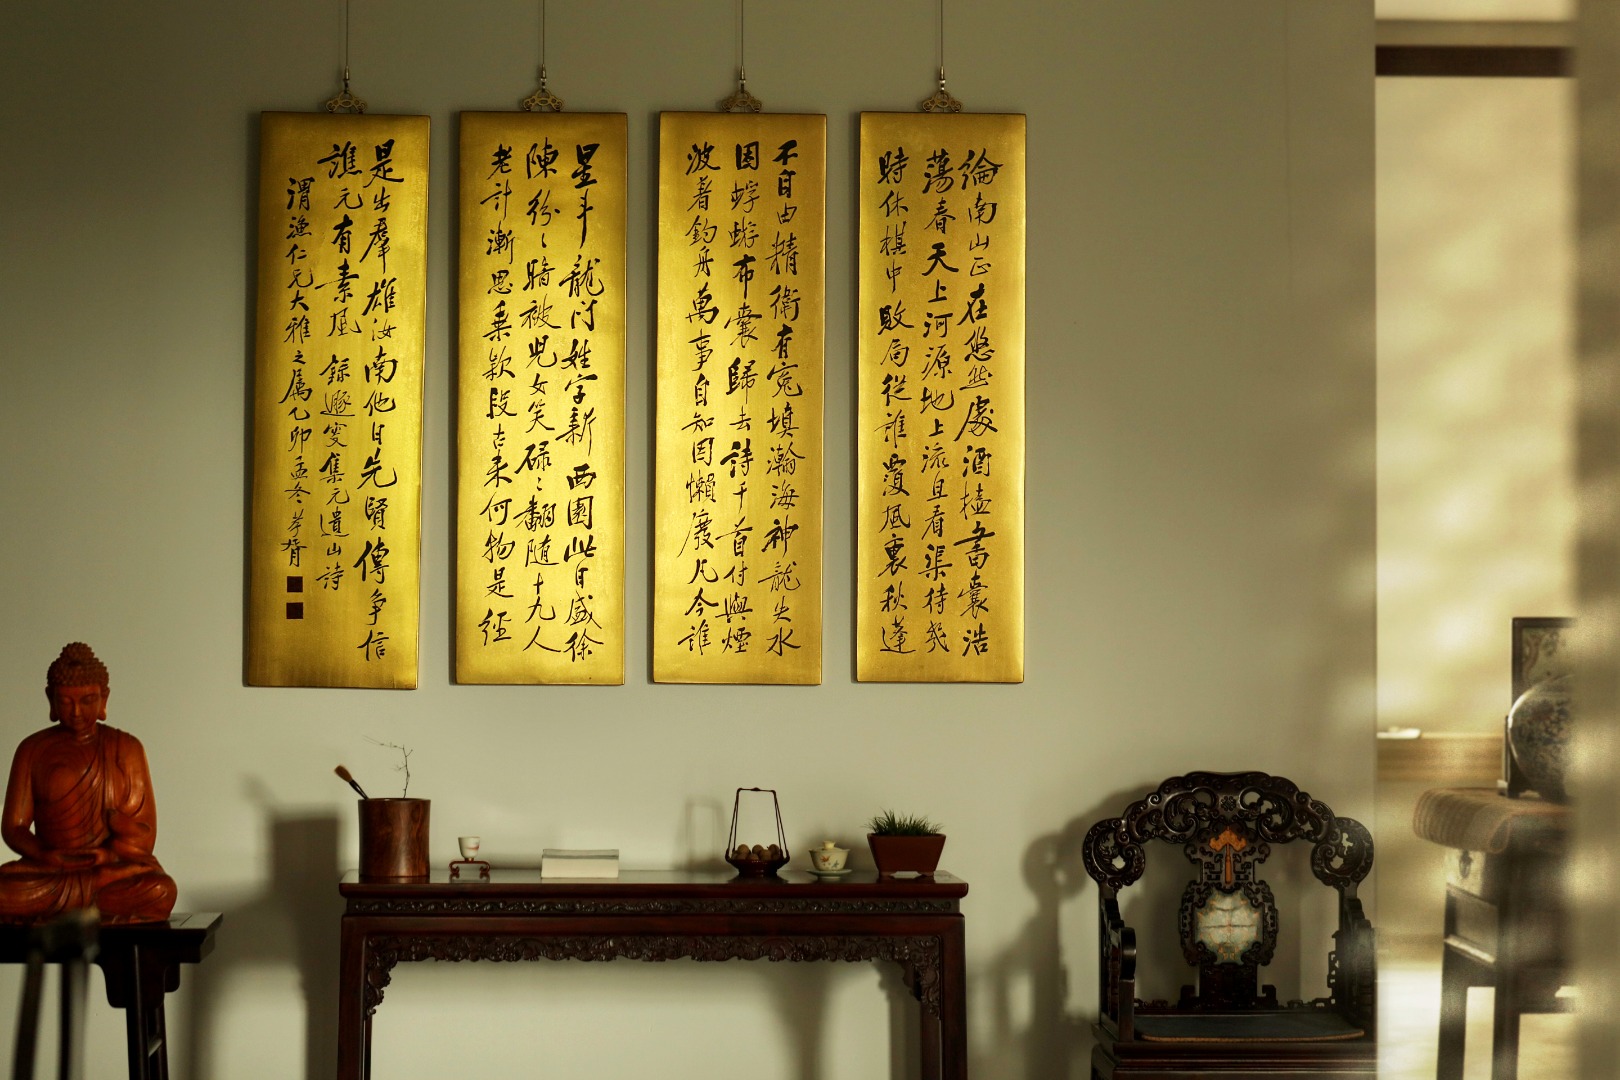 綸南山正在悠然處酒榼書囊浩
蕩春天上河源地上流且看渠待幾
時休棋中敗局從誰覆風裏秋蓬
不自由精衛有冤塡瀚海神龍失水
困蜉蝣布囊歸去詩千首付與煙
波著釣舟萬事自知因懶廢凡今誰
星斗龍門姓字新西園此日盛徐
陳紛〻暗被兒女笑碌〻翻隨十九人
老計漸思乘款段古來何物是經
是出羣雄汝南他日先賢傳爭信
譙元有素風 錄遯叟集元遺山詩
渭漁仁兄大雅之屬乙卯孟冬孝胥